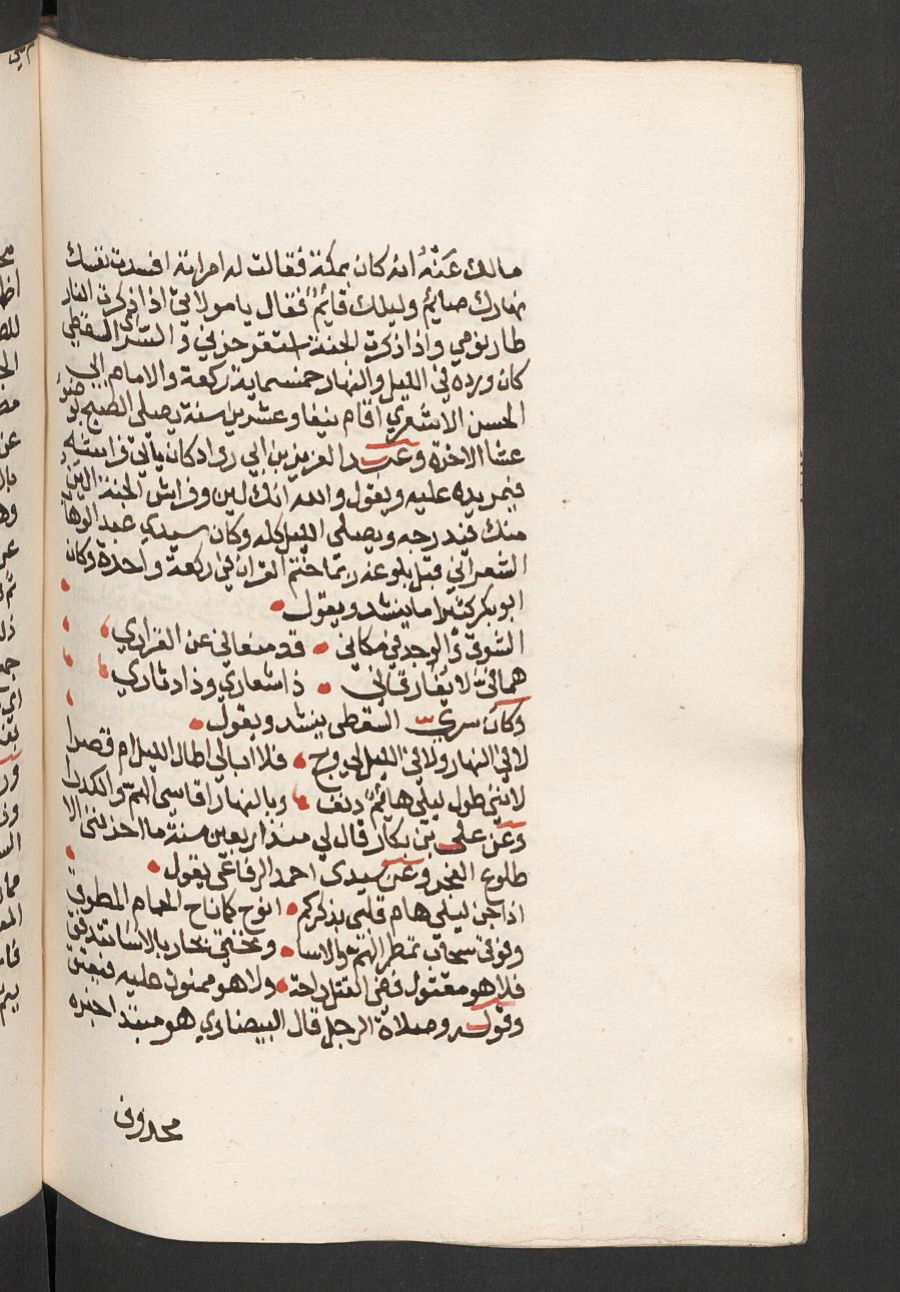 مالك عَنْهُ انه كان بمكة فقالت له امراته افسدت نفسك
نهارك صايم وليلك قائم فقال يا مولاتي اذا ذكرت النار
طار نومي واذا ذكرت الجنة اشتد حزني و السري السقطي
كان ورده في الليل والنهار خمسماية ركعة والامام ابي
الحسن الاشعري اقام نيفا وعشرين سنة يصلي الصبح بوضو
عشا الاخره وعبد العزيز بن ابي رواد كان ياتي فراشه
فيمر يده عليه ويقول والله انك لين وفراش الجنة الين
منك فيدرجه ويصلي الليل كله وكان سيدي عبد الوهاب
الشعراني قبل بلوغه ربما ختم القران في ركعة واحدة وكان
ابو بكر كثيرا ما ينشد ويقول
الشوق والوجد في مكاني قد منعاني عن القراري
هما معي لا يفارقاني ذا شعاري وذا دثاري
وكان سري السقطي ينشد ويقول
لا في النهار ولا في الليل لي فرح فلا ابالي اطال الليل ام قصرا
لانني طول ليلي هائم دنف وبالنهار اقاسي الهم والكدرا
وعن علي بن بكار قال لي منذ اربعين سنة ما احزنني الا
طلوع الفجر وعن سيدي احمد الرفاعي يقول
اذا جن ليلي هام قلبي بذكركم انوح كما ناح الحمام المطوق
وفوقي سحاب تمطر الهم والاسا وتحتي بحار بالاسا تتدفق
فلا هو مقتول ففي القتل راحة ولا هو ممنون عليه فيعتق
وقوله وصلاة الرجل قال البيضاوي هو مبتدا خبره
محذوف